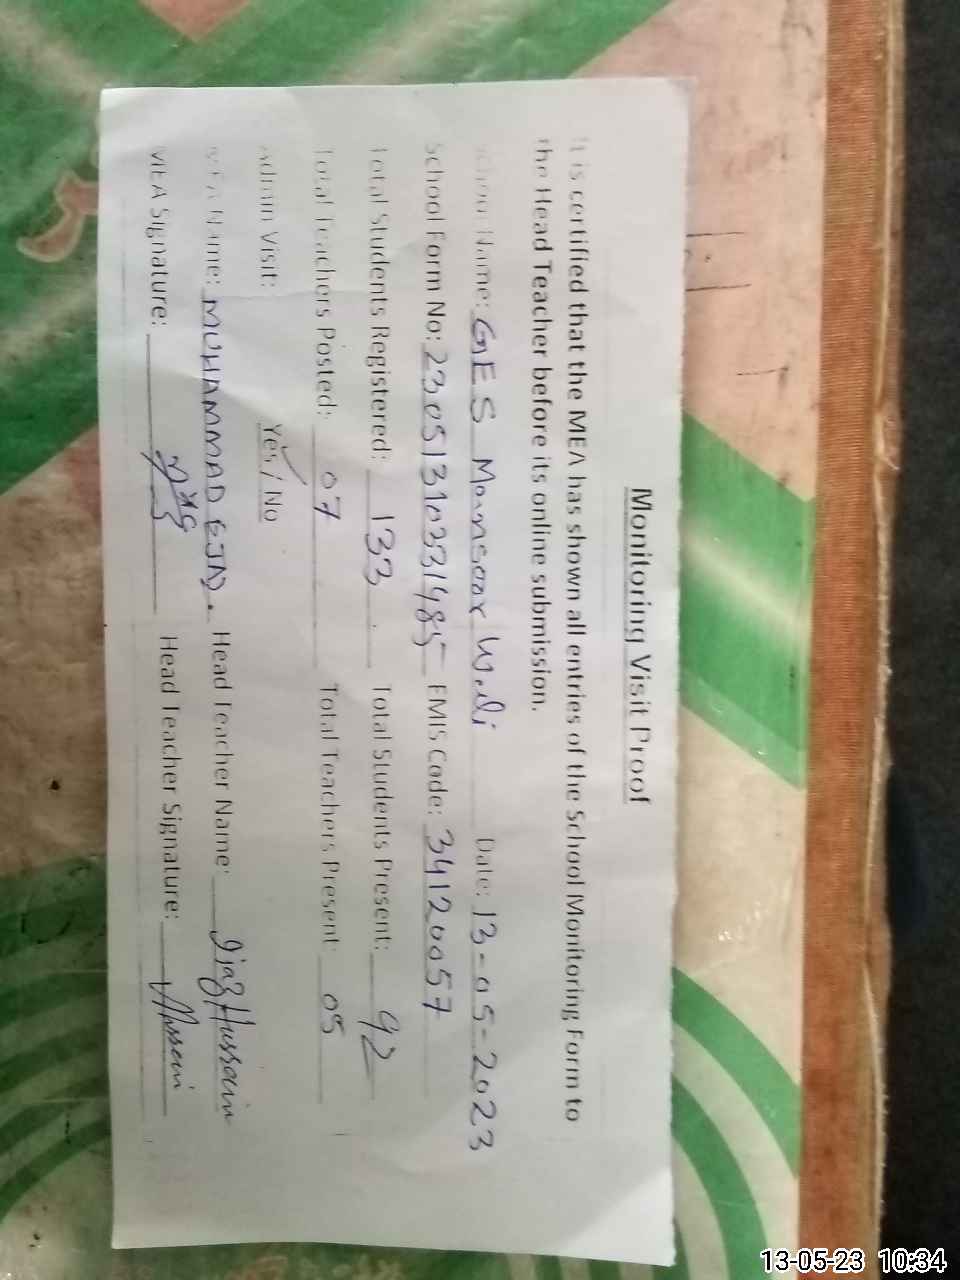 Monitoring Visit Proof
It is certified that the MEA has shown all entries of the School Monitoring Form to
the Head Teacher before its online submission.
School Name: GES Mamsoor Wali Date: 13-05-2023
School Form No: 23051310231485 EMIS Code: 34120057
Total Students Registered: 133 Total Students Present: 92
Total Teachers Posted: 07 Total Teachers Present: 05
Admin Visit: Yes / No
MEA Name: MUHAMMAD EJAZ. Head Teacher Name: Ijaz Hussain
MEA Signature: Head Teacher Signature: Hussain
13-05-23 10:34